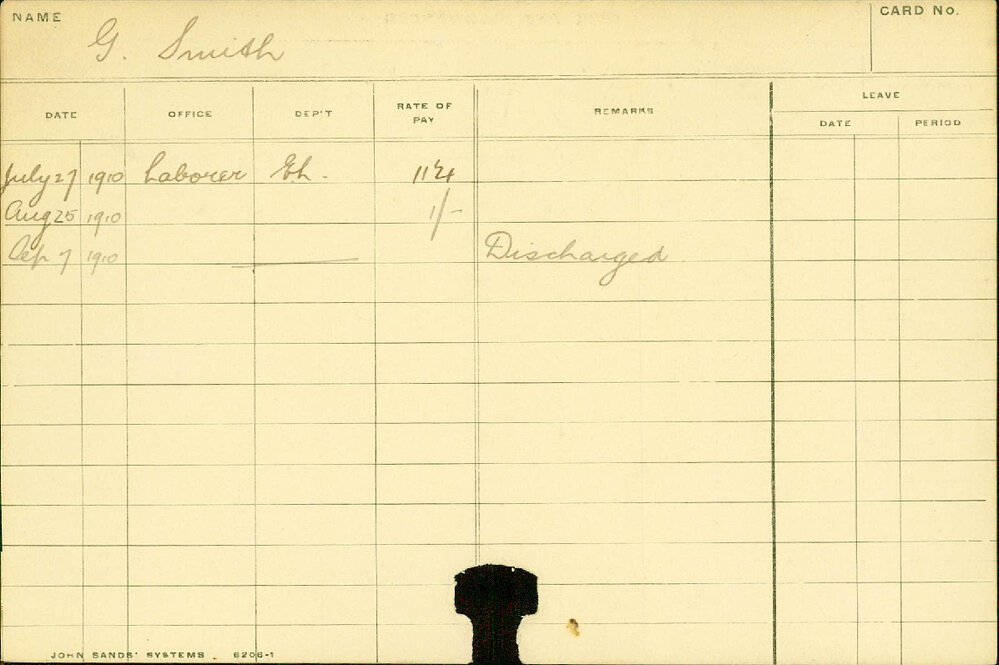 NAME G. Smith CARD No.
DATE OFFICE DEP'T RATE OF PAY REMARKS LEAVE
DATE PERIOD
July 27 1910 Laborer Eh.
Aug 25 1910 1/-
Sep 7 1910 Discharged
JOHN SANDS' SYSTEMS 6206-1